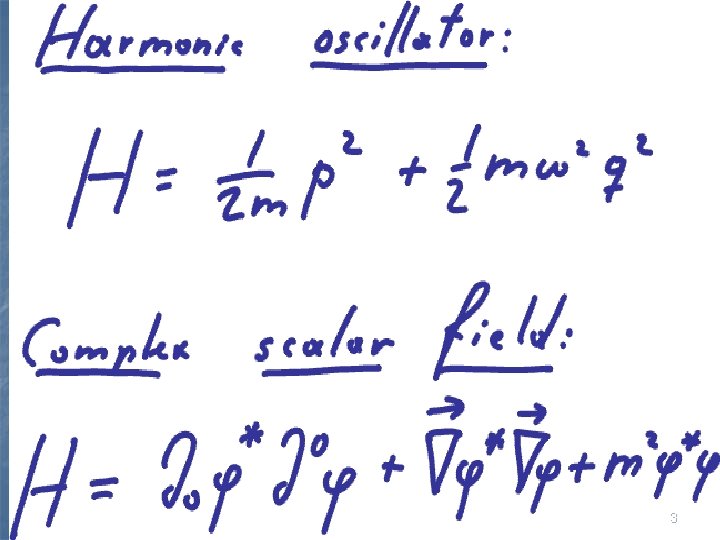 Harmonic oscillator:
H = 1/2m p² + 1/2 mω² q²
Complex scalar field:
H = ∂₀φ* ∂⁰φ + ∇⃗φ* ∇⃗φ + m²φ*φ
3